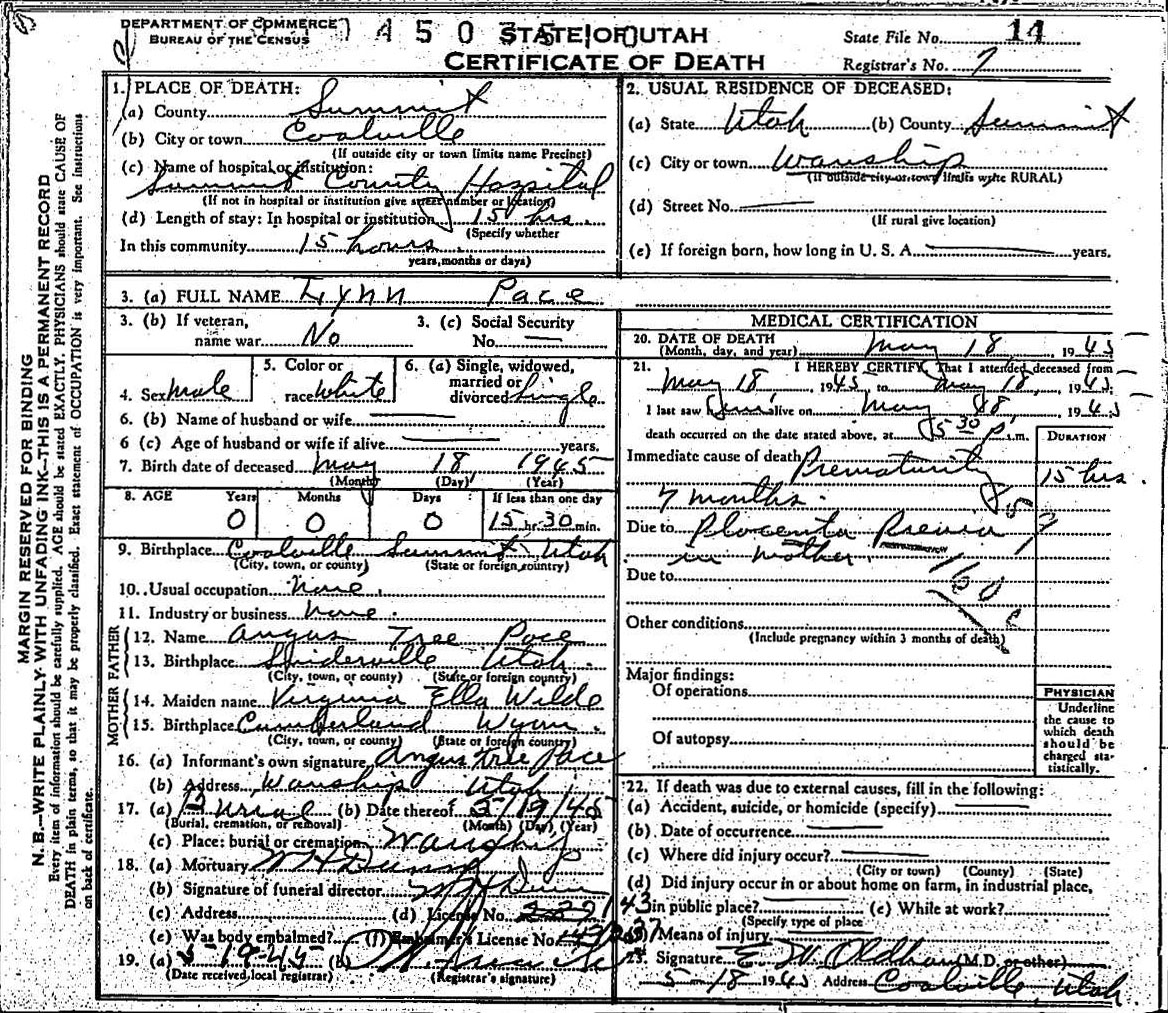 DEPARTMENT OF COMMERCE
BUREAU OF THE CENSUS
4 5 0 3 5 0
STATE OF UTAH
CERTIFICATE OF DEATH
State File No. 14
Registrar's No. 7
MARGIN RESERVED FOR BINDING
N. B.—WRITE PLAINLY WITH UNFADING INK—THIS IS A PERMANENT RECORD
Every item of information should be carefully supplied. AGE should be stated EXACTLY. PHYSICIANS should state CAUSE OF
DEATH in plain terms, so that it may be properly classified. Exact statement of OCCUPATION is very important. See instructions
on back of certificate.
1. PLACE OF DEATH:
(a) County Summit
(b) City or town Coalville
(If outside city or town limits name Precinct)
(c) Name of hospital or institution:
Summit County Hospital
(If not in hospital or institution give street number or location)
(d) Length of stay: In hospital or institution 15 hrs.
(Specify whether
In this community 15 hours
years, months or days)
2. USUAL RESIDENCE OF DECEASED:
(a) State Utah (b) County Summit
(c) City or town Wanship
(If outside city or town limits write RURAL)
(d) Street No.
(If rural give location)
(e) If foreign born, how long in U. S. A. years.
3. (a) FULL NAME Lynn Pace
3. (b) If veteran, name war No
3. (c) Social Security No.
4. Sex male
5. Color or race White
6. (a) Single, widowed, married or divorced Single
6. (b) Name of husband or wife
6 (c) Age of husband or wife if alive years.
7. Birth date of deceased May 18 1945
(Month) (Day) (Year)
8. AGE Years Months Days If less than one day
0 0 0 15 hr. 30 min.
9. Birthplace Coalville Summit Utah
(City, town, or county) (State or foreign country)
10. Usual occupation None.
11. Industry or business None.
FATHER
12. Name Angus Tree Pace
13. Birthplace Utah.
(City, town, or county) (State or foreign country)
MOTHER
14. Maiden name Virginia Ella Wilde
15. Birthplace Cumberland Wyom.
(City, town, or county) (State or foreign country)
16. (a) Informant's own signature Angus Tree Pace
(b) Address Wanship Utah
17. (a) Burial (b) Date thereof 5/19/45
(Burial, cremation, or removal) (Month) (Day) (Year)
(c) Place: burial or cremation Wanship
18. (a) Mortuary
(b) Signature of funeral director
(c) Address (d) License No.
(e) Was body embalmed? (f) Embalmer's License No.
19. (a) 5-19-45 (b)
(Date received local registrar) (Registrar's signature)
MEDICAL CERTIFICATION
20. DATE OF DEATH
(Month, day, and year) May 18, 1945
21. I HEREBY CERTIFY, That I attended deceased from
May 18, 1945 to May 18, 1945
I last saw alive on May 18, 1945
death occurred on the date stated above, at 5 30 P m.
DURATION
Immediate cause of death Prematurity 15 hrs.
7 months.
Due to Placenta Previa
in mother.
160 c
Due to
Other conditions
(Include pregnancy within 3 months of death)
Major findings:
Of operations
Of autopsy
PHYSICIAN
Underline
the cause to
which death
should be
charged sta-
tistically.
22. If death was due to external causes, fill in the following:
(a) Accident, suicide, or homicide (specify)
(b) Date of occurrence
(c) Where did injury occur?
(City or town) (County) (State)
(d) Did injury occur in or about home on farm, in industrial place,
in public place? (e) While at work?
(Specify type of place
Means of injury
23. Signature E. W. Oldham (M.D. or other)
5-18 1945 Address Coalville, Utah.